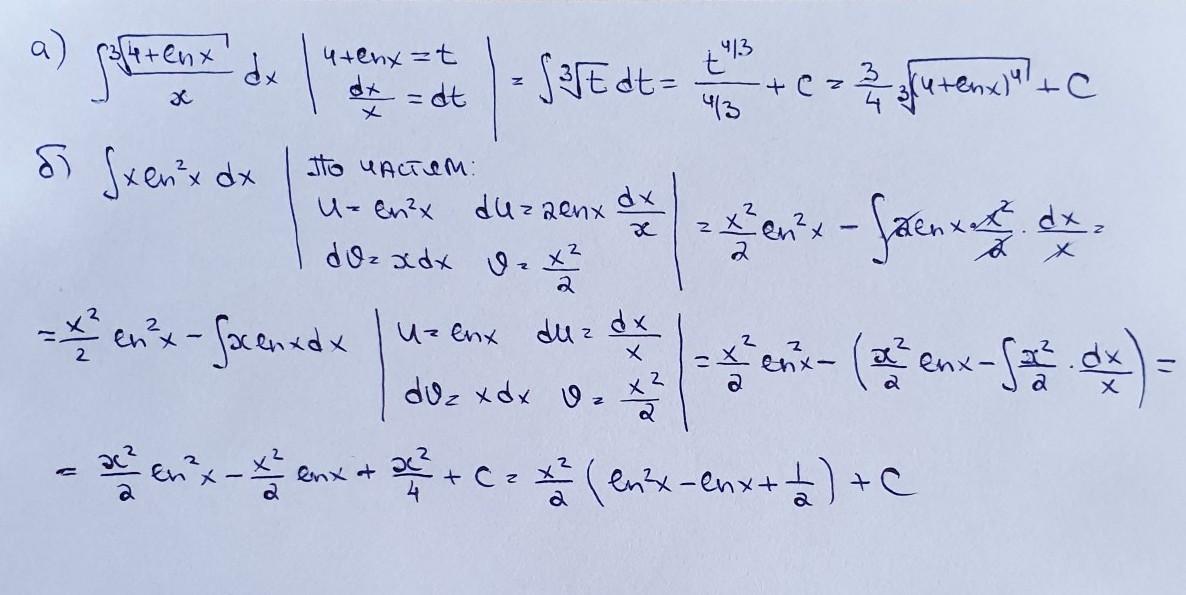 а) ∫ ∛(4+lnx) / x dx | 4+lnx = t   dx/x = dt | = ∫ ∛t dt = t^(4/3) / (4/3) + C = 3/4 ∛((4+lnx)^4) + C
б) ∫ x ln²x dx | По частям: u = ln²x   du = 2lnx dx/x   dv = xdx   v = x²/2 | = x²/2 ln²x − ∫ 2lnx · x²/2 · dx/x =
= x²/2 ln²x − ∫ x lnx dx | u = lnx   du = dx/x   dv = xdx   v = x²/2 | = x²/2 ln²x − (x²/2 lnx − ∫ x²/2 · dx/x) =
= x²/2 ln²x − x²/2 lnx + x²/4 + C = x²/2 (ln²x − lnx + 1/2) + C